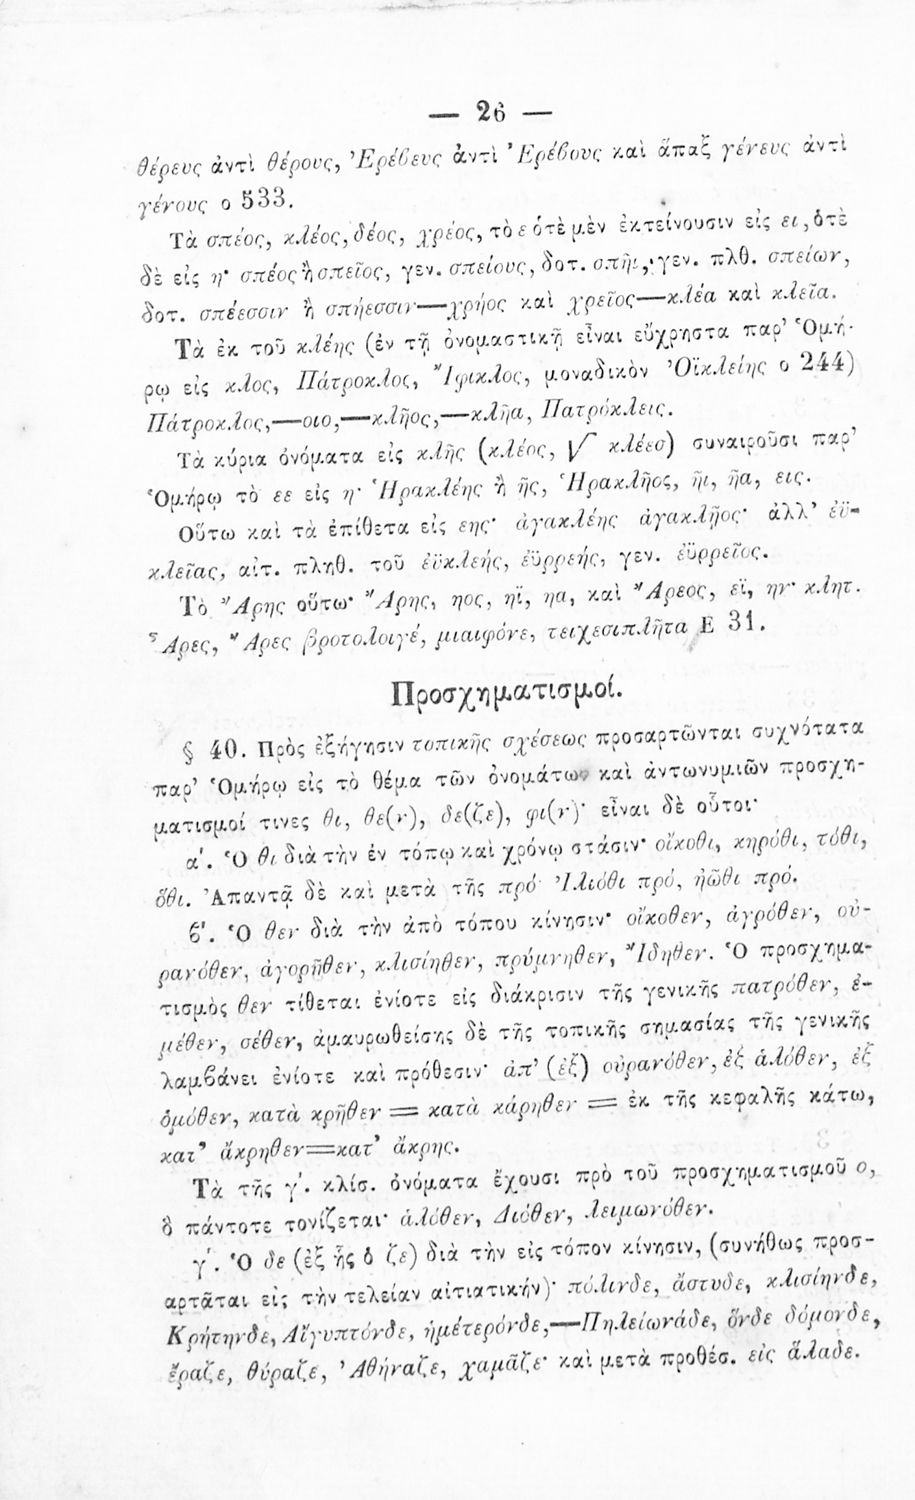 — 26 —
θέρευς ἀντὶ θέρους, Ἐρέβευς ἀντὶ Ἐρέβους καὶ ἅπαξ γένευς ἀντὶ
γένους ο 533.
Τὰ σπέος, κλέος, δέος, χρέος, τὸ ε ὁτὲ μὲν ἐκτείνουσιν εἰς ει, ὁτὲ
δὲ εἰς η· σπέος ἢ σπεῖος, γεν. σπείους, δοτ. σπῆι, γεν. πλθ. σπείων,
δοτ. σπέεσσιν ἢ σπήεσσιν—χρήος καὶ χρεῖος—κλέα καὶ κλεῖα.
Τὰ ἐκ τοῦ κλέης (ἐν τῇ ὀνομαστικῇ εἶναι εὔχρηστα παρ' Ὁμή-
ρῳ εἰς κλος, Πάτροκλος, Ἴφικλος, μοναδικὸν Ὀϊκλείης ο 244)
Πάτροκλος,—οιο,—κλῆος,—κλῆα, Πατρόκλεις.
Τὰ κύρια ὀνόματα εἰς κλῆς (κλέος, √ κλέεσ) συναιροῦσι παρ'
Ὁμήρῳ τὸ εε εἰς η· Ἡρακλέης ἢ ῆς, Ἡρακλῆος, ῆι, ῆα, εις.
Οὕτω καὶ τὰ ἐπίθετα εἰς εης· ἀγακλέης ἀγακλῆος· ἀλλ' ἐϋ-
κλεῖας, αἰτ. πληθ. τοῦ ἐϋκλεής, ἐϋρρεής, γεν. ἐϋρρεῖος.
Τὸ Ἄρης οὕτω· Ἄρης, ηος, ηϊ, ηα, καὶ Ἄρεος, εϊ, ην· κλητ.
Ἆρες, Ἄρες βροτολοιγέ, μιαιφόνε, τειχεσιπλῆτα Ε 31.
Προσχηματισμοί.
§ 40. Πρὸς ἐξήγησιν τοπικῆς σχέσεως προσαρτῶνται συχνότατα
παρ' Ὁμήρῳ εἰς τὸ θέμα τῶν ὀνομάτων καὶ ἀντωνυμιῶν προσχη-
ματισμοί τινες θι, θε(ν), δε(ζε), φι(ν)· εἶναι δὲ οὗτοι·
α'. Ὁ θι διὰ τὴν ἐν τόπῳ καὶ χρόνῳ στάσιν· οἴκοθι, κηρόθι, τόθι,
ὅθι. Ἀπαντᾷ δὲ καὶ μετὰ τῆς πρό· Ἰλιόθι πρό, ἠῶθι πρό.
β'. Ὁ θεν διὰ τὴν ἀπὸ τόπου κίνησιν· οἴκοθεν, ἀγρόθεν, οὐ-
ρανόθεν, ἀγορῆθεν, κλισίηθεν, πρύμνηθεν, Ἴδηθεν. Ὁ προσχημα-
τισμὸς θεν τίθεται ἐνίοτε εἰς διάκρισιν τῆς γενικῆς πατρόθεν, ἐ-
μέθεν, σέθεν, ἀμαυρωθείσης δὲ τῆς τοπικῆς σημασίας τῆς γενικῆς
λαμβάνει ἐνίοτε καὶ πρόθεσιν· ἀπ' (ἐξ) οὐρανόθεν, ἐξ ἁλόθεν, ἐξ
ὁμόθεν, κατὰ κρῆθεν = κατὰ κάρηθεν = ἐκ τῆς κεφαλῆς κάτω,
κατ' ἄκρηθεν=κατ' ἄκρης.
Τὰ τῆς γ'. κλίσ. ὀνόματα ἔχουσι πρὸ τοῦ προσχηματισμοῦ ο,
ὃ πάντοτε τονίζεται· ἁλόθεν, Διόθεν, λειμωνόθεν.
γ'. Ὁ δε (ἐξ ἧς ὁ ζε) διὰ τὴν εἰς τόπον κίνησιν, (συνήθως προσ-
αρτᾶται εἰς τὴν τελείαν αἰτιατικήν)· πόλινδε, ἄστυδε, κλισίηνδε,
Κρήτηνδε, Αἴγυπτόνδε, ἡμέτερόνδε,—Πηλείωνάδε, ὅνδε δόμονδε,
ἔραζε, θύραζε, Ἀθήναζε, χαμᾶζε· καὶ μετὰ προθέσ. εἰς ἅλαδε.